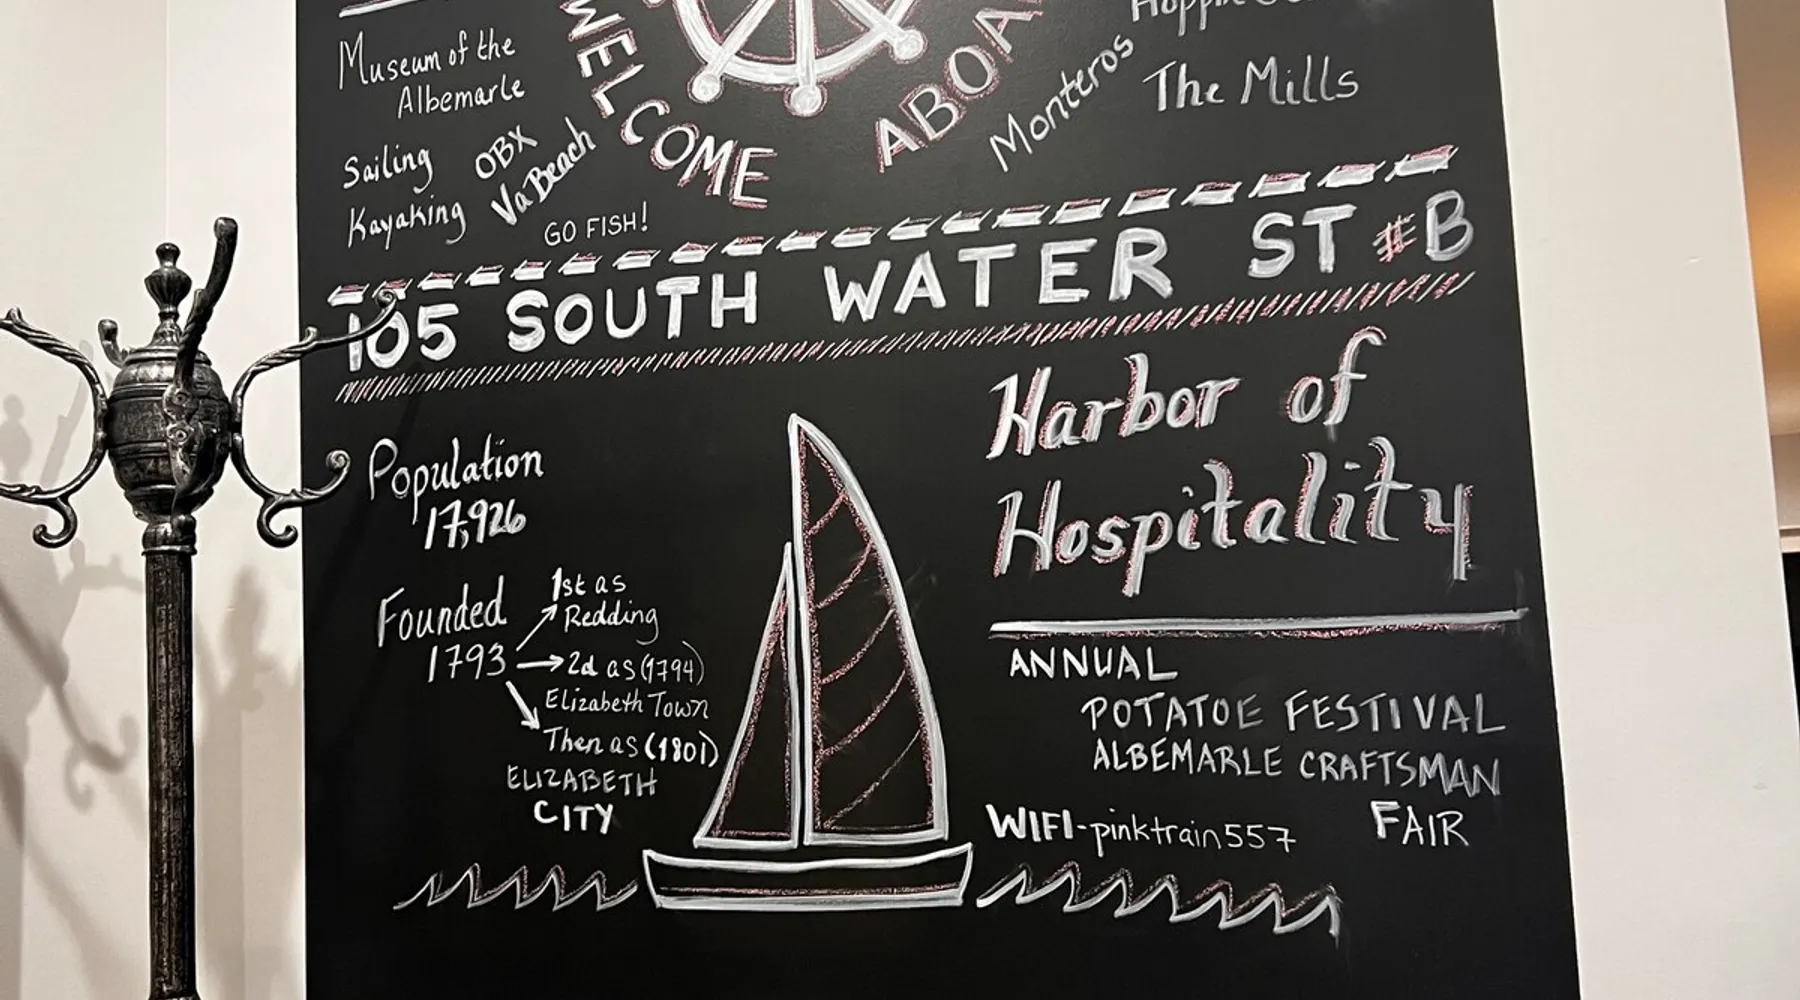 Museum of the
Albemarle
Sailing
Kayaking
OBX
Va Beach
GO FISH!
WELCOME
Monteros
The Mills
105 SOUTH WATER ST #B
Population
17,926
Founded
1793
1st as
Redding
2d as (1794)
Elizabeth Town
Then as (1801)
ELIZABETH
CITY
Harbor of
Hospitality
ANNUAL
POTATOE FESTIVAL
ALBEMARLE CRAFTSMAN
FAIR
WIFI-pinktrain557